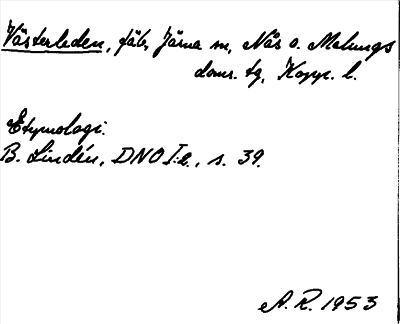 Västerleden, fäb, Järna sn, Nås o. Malungs
doms. tg, Kopp. l.
Etymologi.
B. Lindén, DNO I:2, s. 39.
A. R. 1953